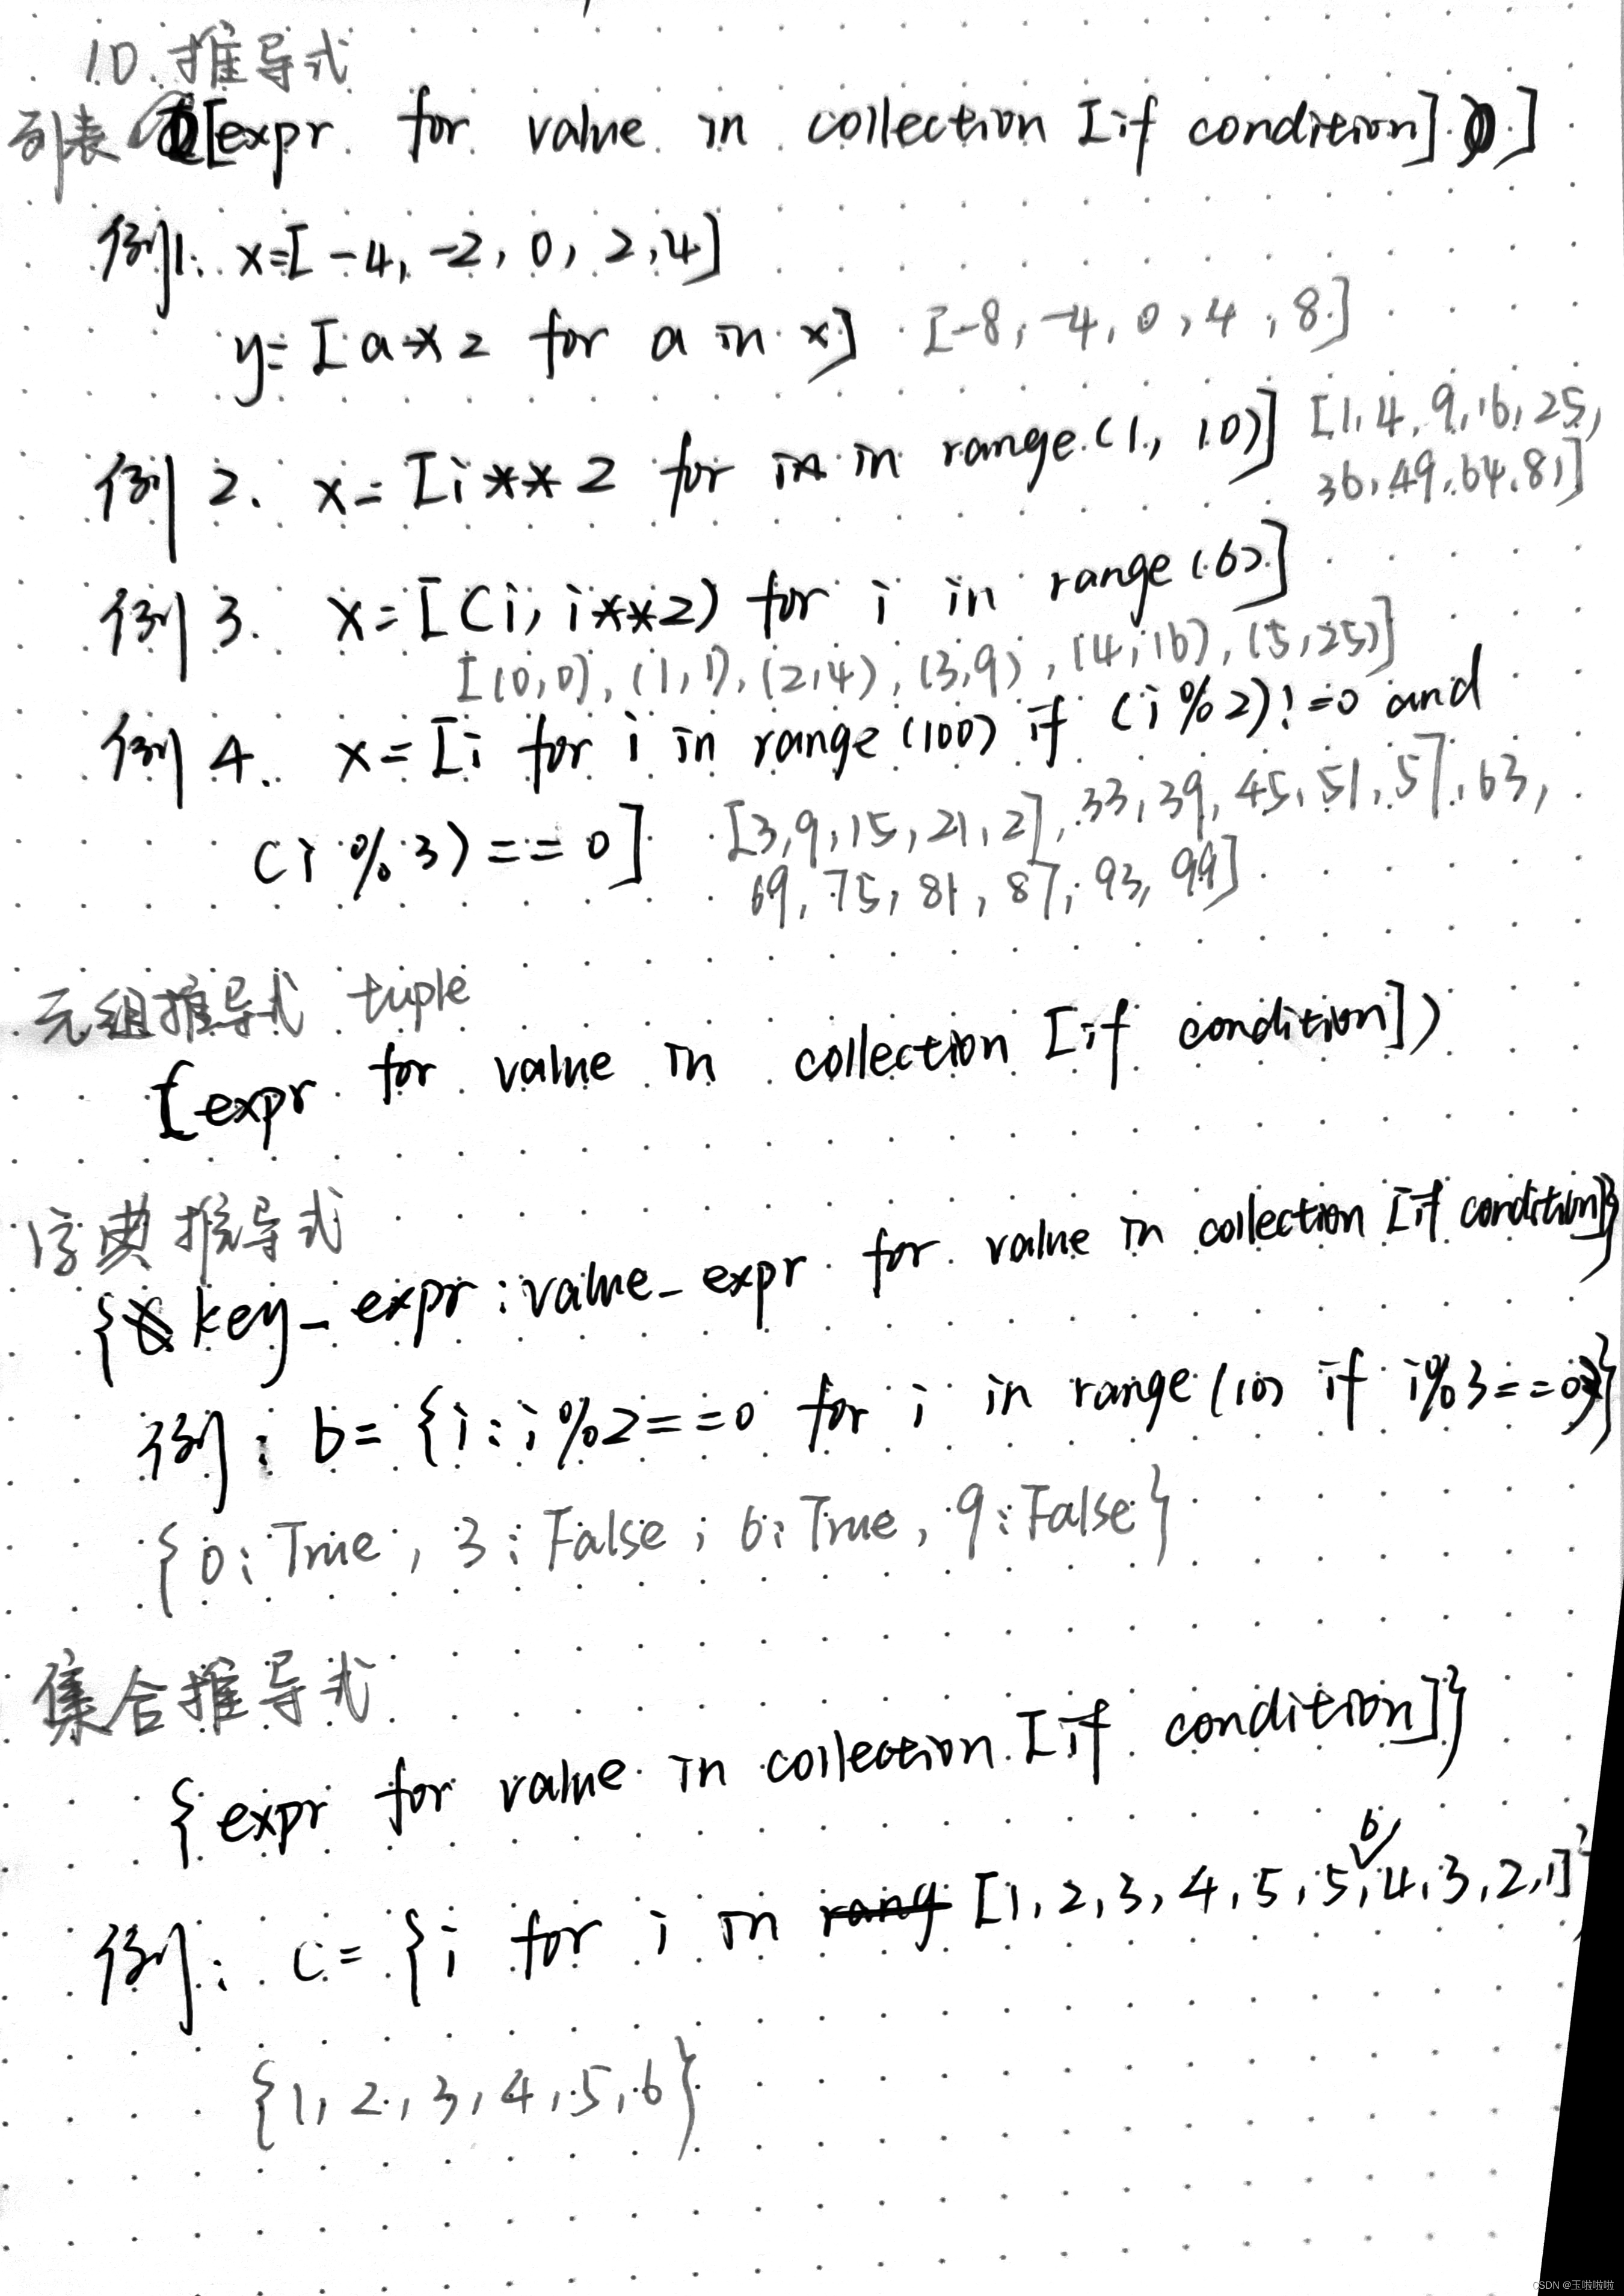 10. 推导式
列表 [expr for value in collection [if condition] ]
例1. x=[-4, -2, 0, 2, 4]
y=[a*2 for a in x] [-8, -4, 0, 4, 8]
例2. x=[i**2 for in in range(1, 10)] [1, 4, 9, 16, 25,
36, 49, 64, 81]
例3. x=[(i, i**2) for i in range(6)]
[(0,0), (1,1), (2,4), (3,9), (4,16), (5,25)]
例4. x=[i for i in range(100) if (i%2)!=0 and
(i%3)==0] [3, 9, 15, 21, 27, 33, 39, 45, 51, 57, 63,
69, 75, 81, 87, 93, 99]
元组推导式 tuple
[expr for value in collection [if condition])
字典推导式
{key_expr:value_expr for value in collection [if condition]}
例: b={i:i%2==0 for i in range(10) if i%3==0}
{0:True, 3:False, 6:True, 9:False}
集合推导式
{expr for value in collection [if condition]}
例: c={i for i in [1,2,3,4,5,5,6,4,3,2,1]}
{1,2,3,4,5,6}
CSDN @玉啦啦啦